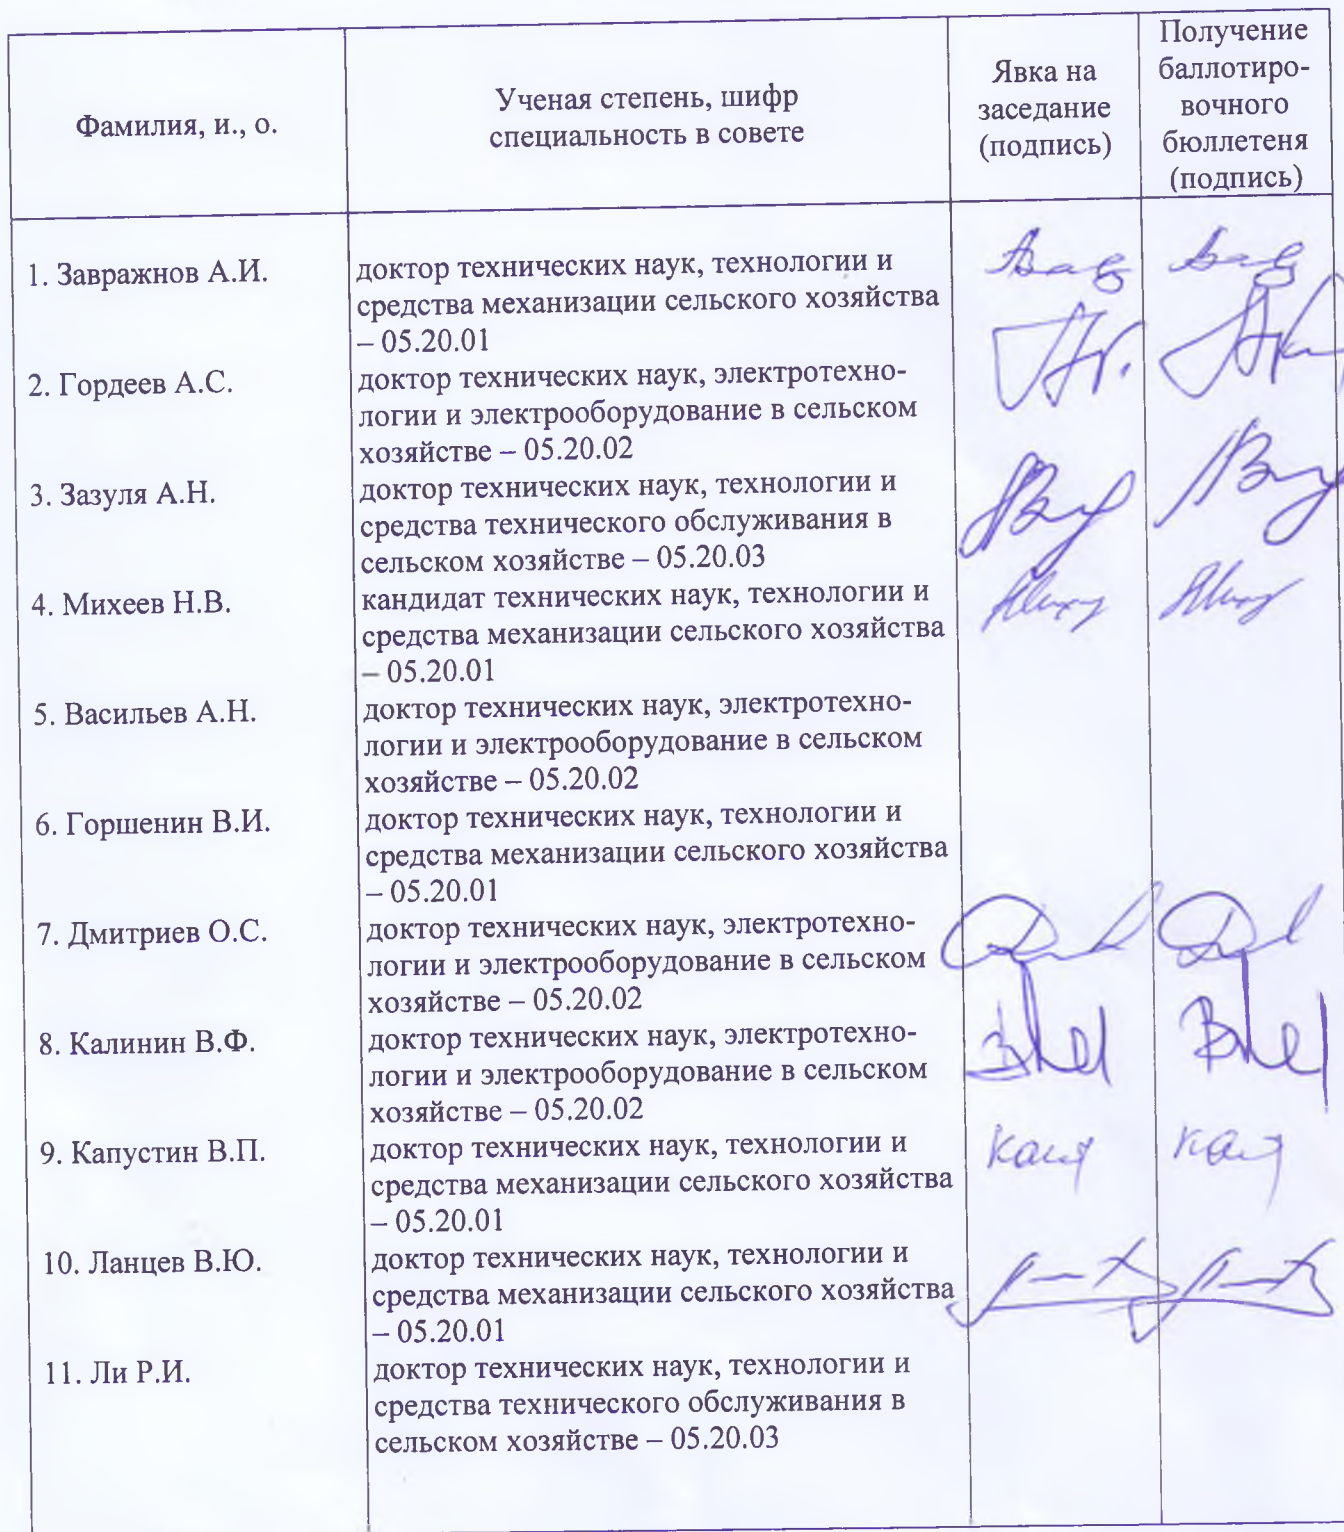 Фамилия, и., о.
Ученая степень, шифр
специальность в совете
Явка на
заседание
(подпись)
Получение
баллотиро-
вочного
бюллетеня
(подпись)
1. Завражнов А.И.
доктор технических наук, технологии и
средства механизации сельского хозяйства
– 05.20.01
2. Гордеев А.С.
доктор технических наук, электротехно-
логии и электрооборудование в сельском
хозяйстве – 05.20.02
3. Зазуля А.Н.
доктор технических наук, технологии и
средства технического обслуживания в
сельском хозяйстве – 05.20.03
4. Михеев Н.В.
кандидат технических наук, технологии и
средства механизации сельского хозяйства
– 05.20.01
5. Васильев А.Н.
доктор технических наук, электротехно-
логии и электрооборудование в сельском
хозяйстве – 05.20.02
6. Горшенин В.И.
доктор технических наук, технологии и
средства механизации сельского хозяйства
– 05.20.01
7. Дмитриев О.С.
доктор технических наук, электротехно-
логии и электрооборудование в сельском
хозяйстве – 05.20.02
8. Калинин В.Ф.
доктор технических наук, электротехно-
логии и электрооборудование в сельском
хозяйстве – 05.20.02
9. Капустин В.П.
доктор технических наук, технологии и
средства механизации сельского хозяйства
– 05.20.01
10. Ланцев В.Ю.
доктор технических наук, технологии и
средства механизации сельского хозяйства
– 05.20.01
11. Ли Р.И.
доктор технических наук, технологии и
средства технического обслуживания в
сельском хозяйстве – 05.20.03